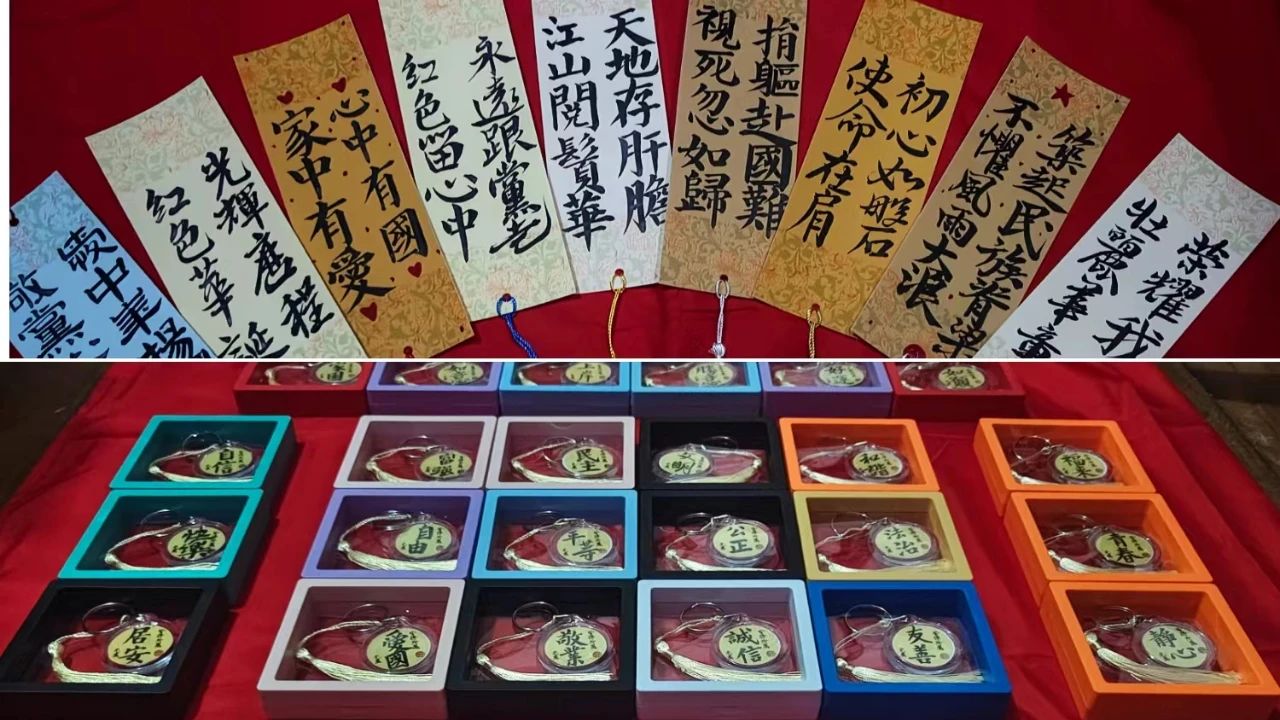 敬黨
光輝歷程
红色華誕
心中有國
家中有愛
永遠跟黨走
红色留心中
天地存肝膽
江山閱鬢華
捐軀赴國難
視死忽如歸
初心如般石
使命在肩
築起民族脊梁
不懼風雨大浪
榮耀我
壯麗華章
家国
如意
上岸
好運
自信
富强
民主
文明
和諧
福来
快樂
自由
平等
公正
法治
青春
居安
愛國
敬業
誠信
友善
静心